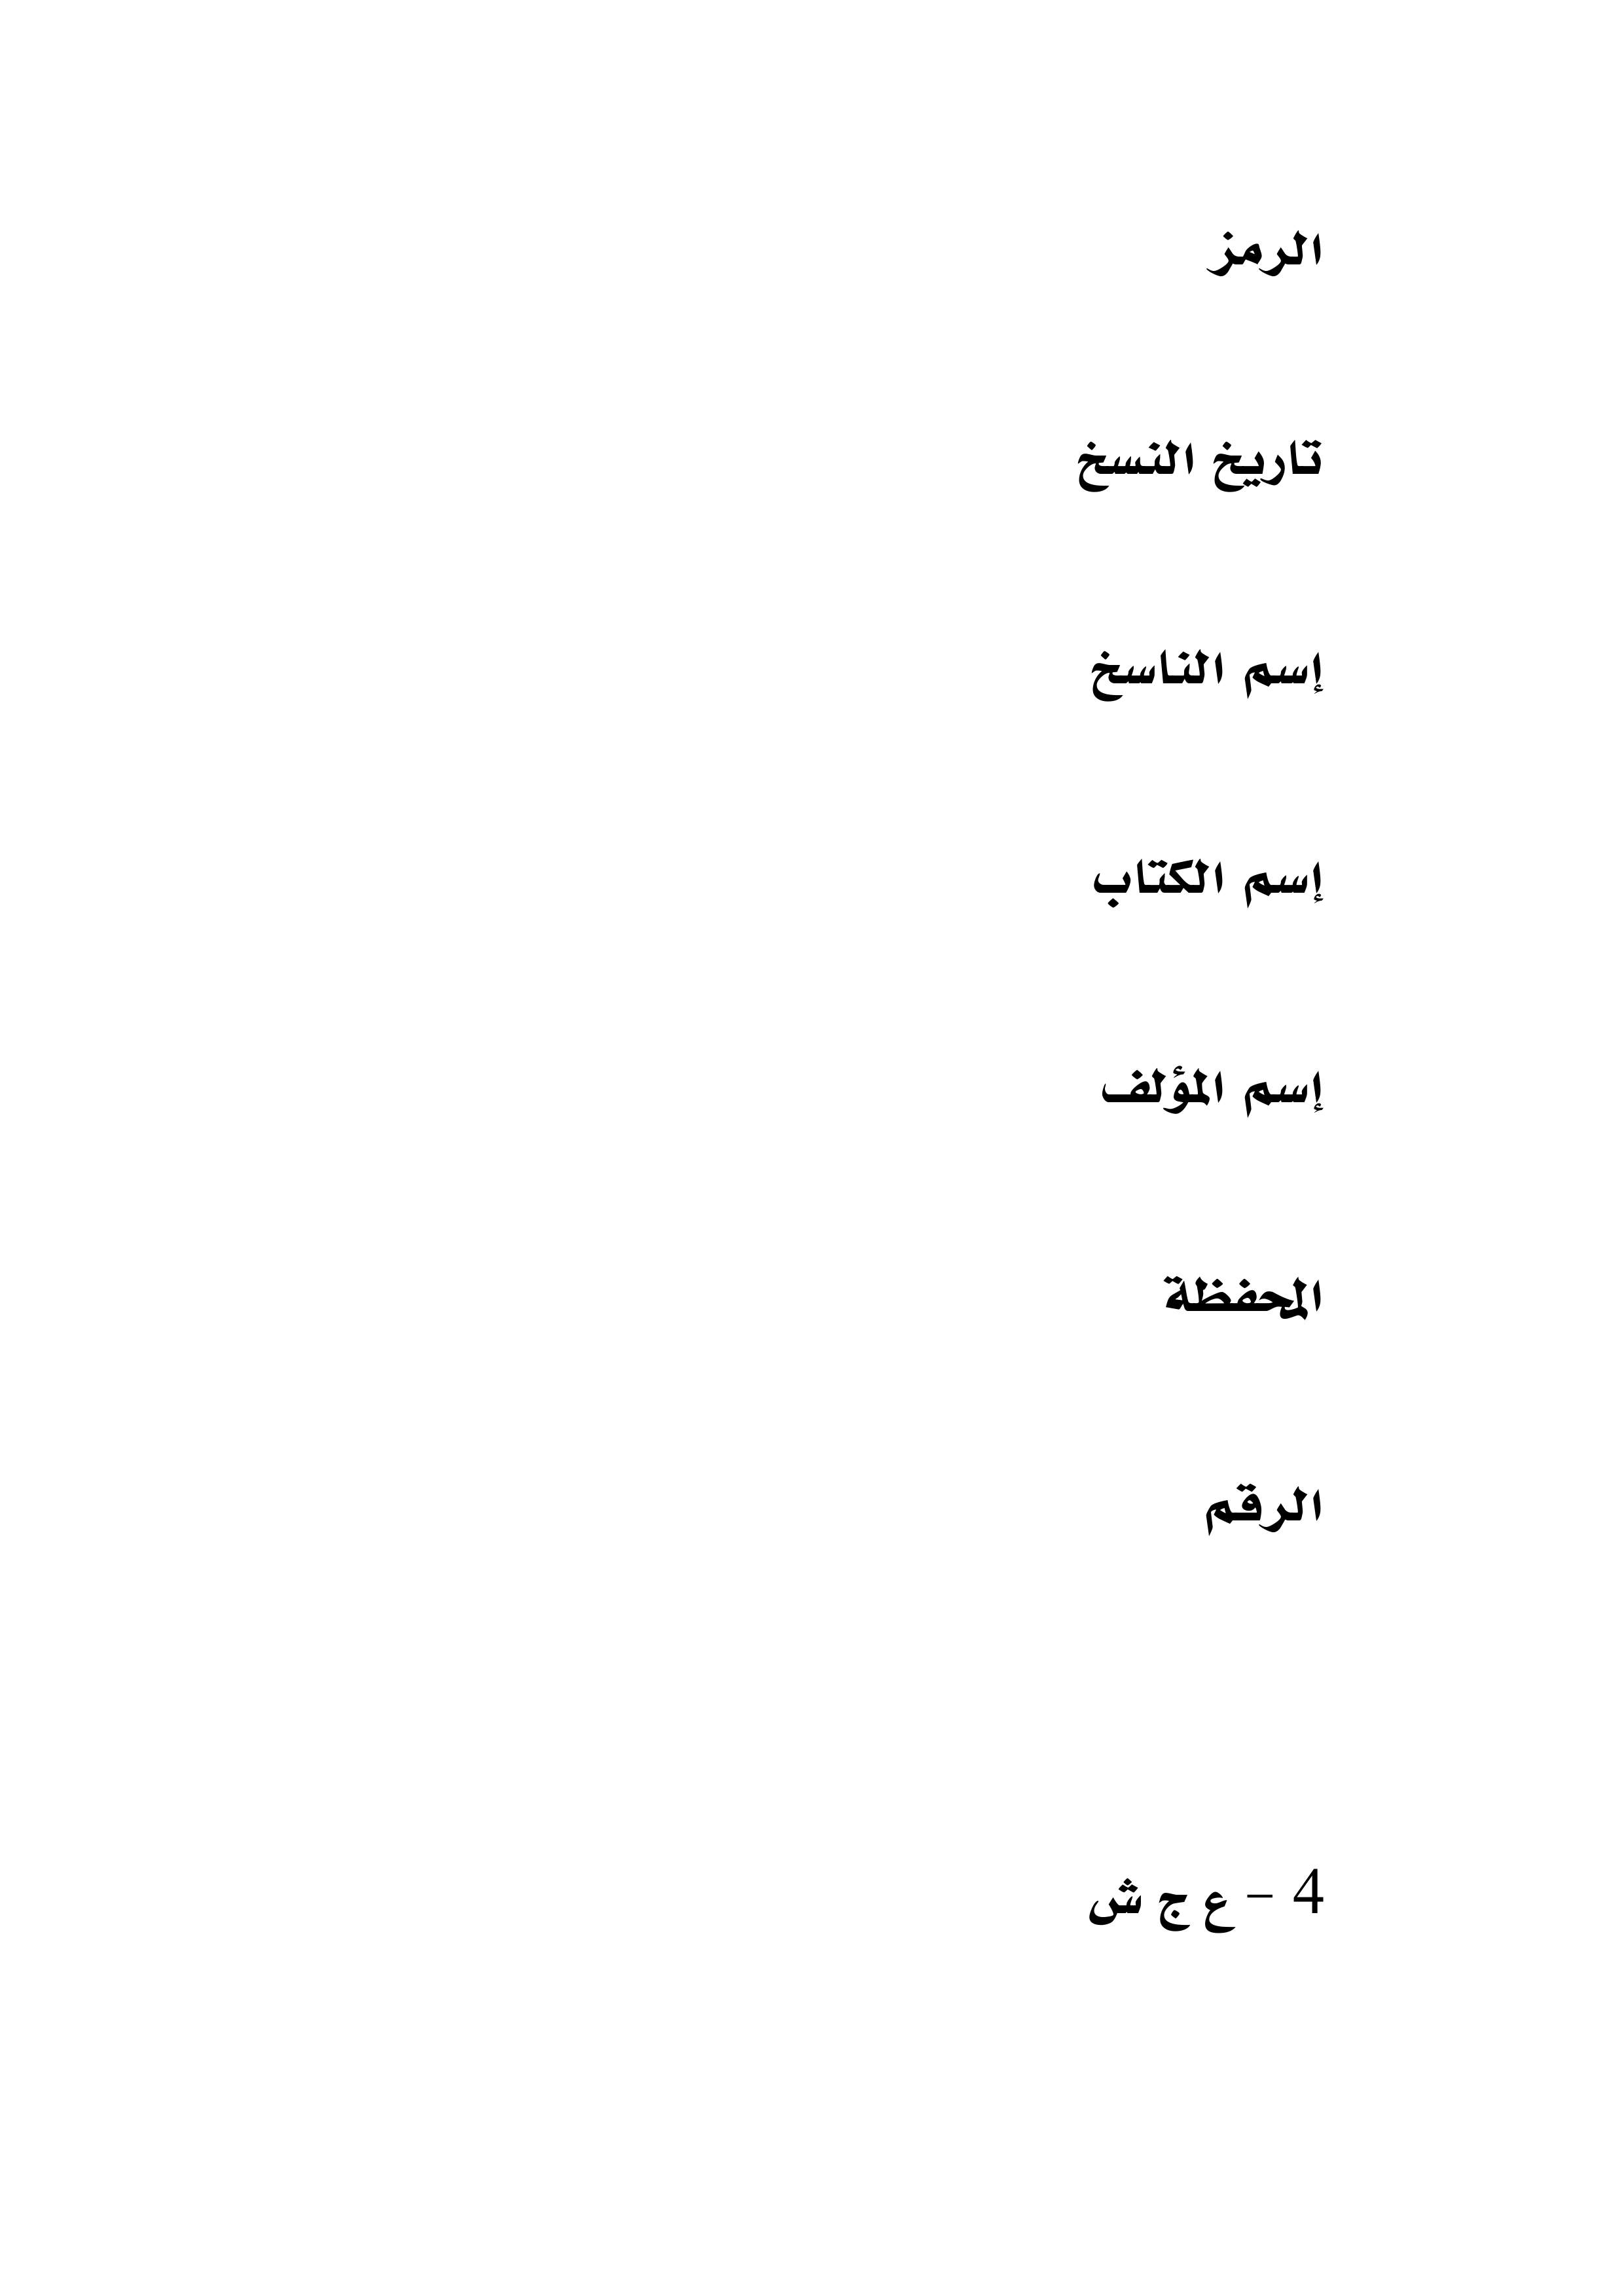 الرمز
تاريخ النسخ
إسم الناسخ
إسم الكتاب
إسم المؤلف
المحفظة
الرقم
4 – ع ج ش